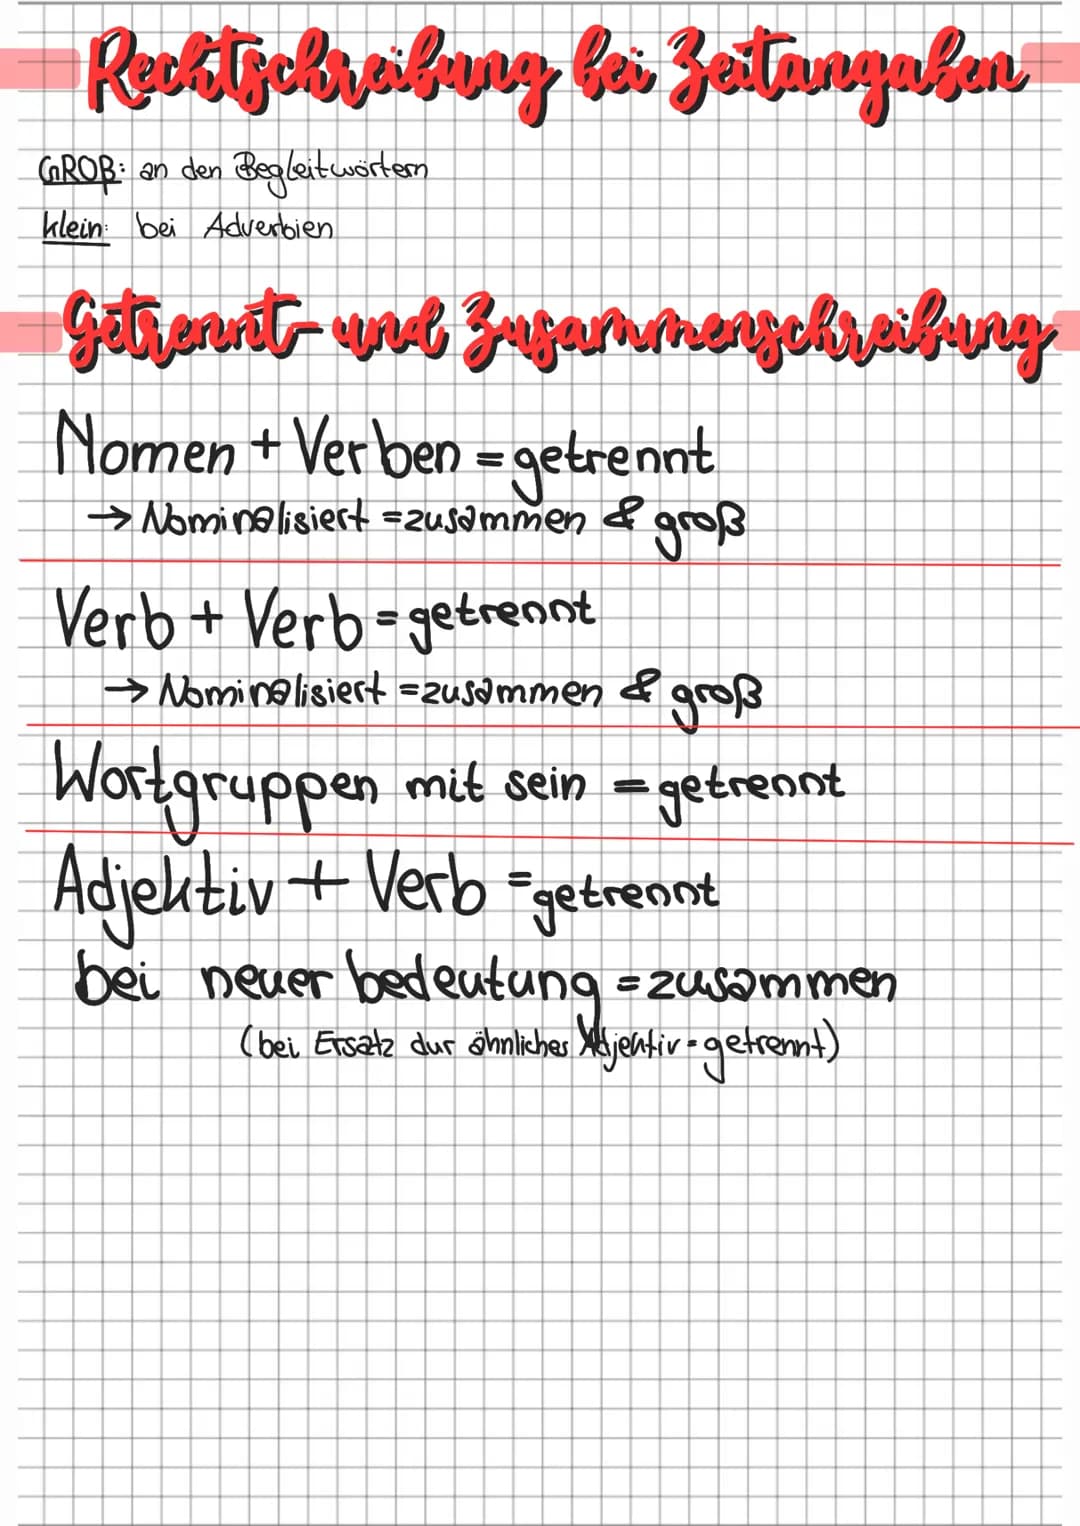 Rechtschreibung bei Zeitangaben
GROß: an den Begleitwörtern
klein: bei Adverbien
Getrennt- und Zusammenschreibung
Nomen + Verben = getrennt
→ Nominalisiert = zusammen & groß
Verb + Verb = getrennt
→ Nominalisiert = zusammen & groß
Wortgruppen mit sein = getrennt
Adjektiv + Verb = getrennt
bei neuer bedeutung = zusammen
(bei Ersatz dur ähnliches Adjektiv = getrennt)